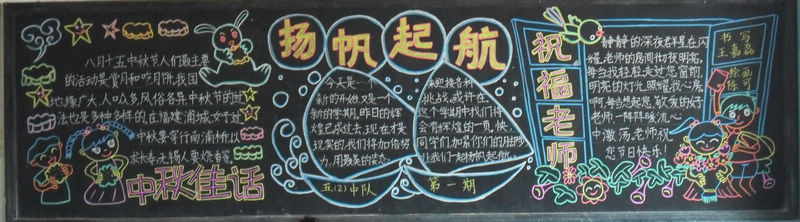 八月十五中秋节人们最主要
的活动是赏月和吃月饼,我国
地缘广大,人口众多,风俗各异,中秋节的过
法也是多种多样的,在福建浦城,女子过
中秋要穿行南浦桥,以
求长寿,无锡人要烧香等。
中秋佳话
扬帆起航
今天是一个
新的开始,又是一个
新的学期,昨日的辉
煌已成过去,现在才是
现实的,我们将加倍努
力,用最美的姿态,
来迎接各种
挑战。或许在
这个学期中我们将
会有辉煌的一页,快,
同学们加紧你们的脚步,
让我们一起扬帆起航。
五(2)中队
第一期
祝福老师
静静的深夜群星在闪
耀,老师的房间彻夜明亮,
每当我轻轻走过您窗前,
明亮的灯光照耀我心房,
啊,每当想起您,敬爱的好
老师,一阵阵暖流心
中激荡。老师,祝
您节日快乐!
书写
王嘉磊
绘画
陈可